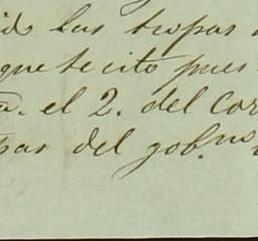 ido las tropas
que te cito pues
a. el 2. del Cor
pas del gob.no